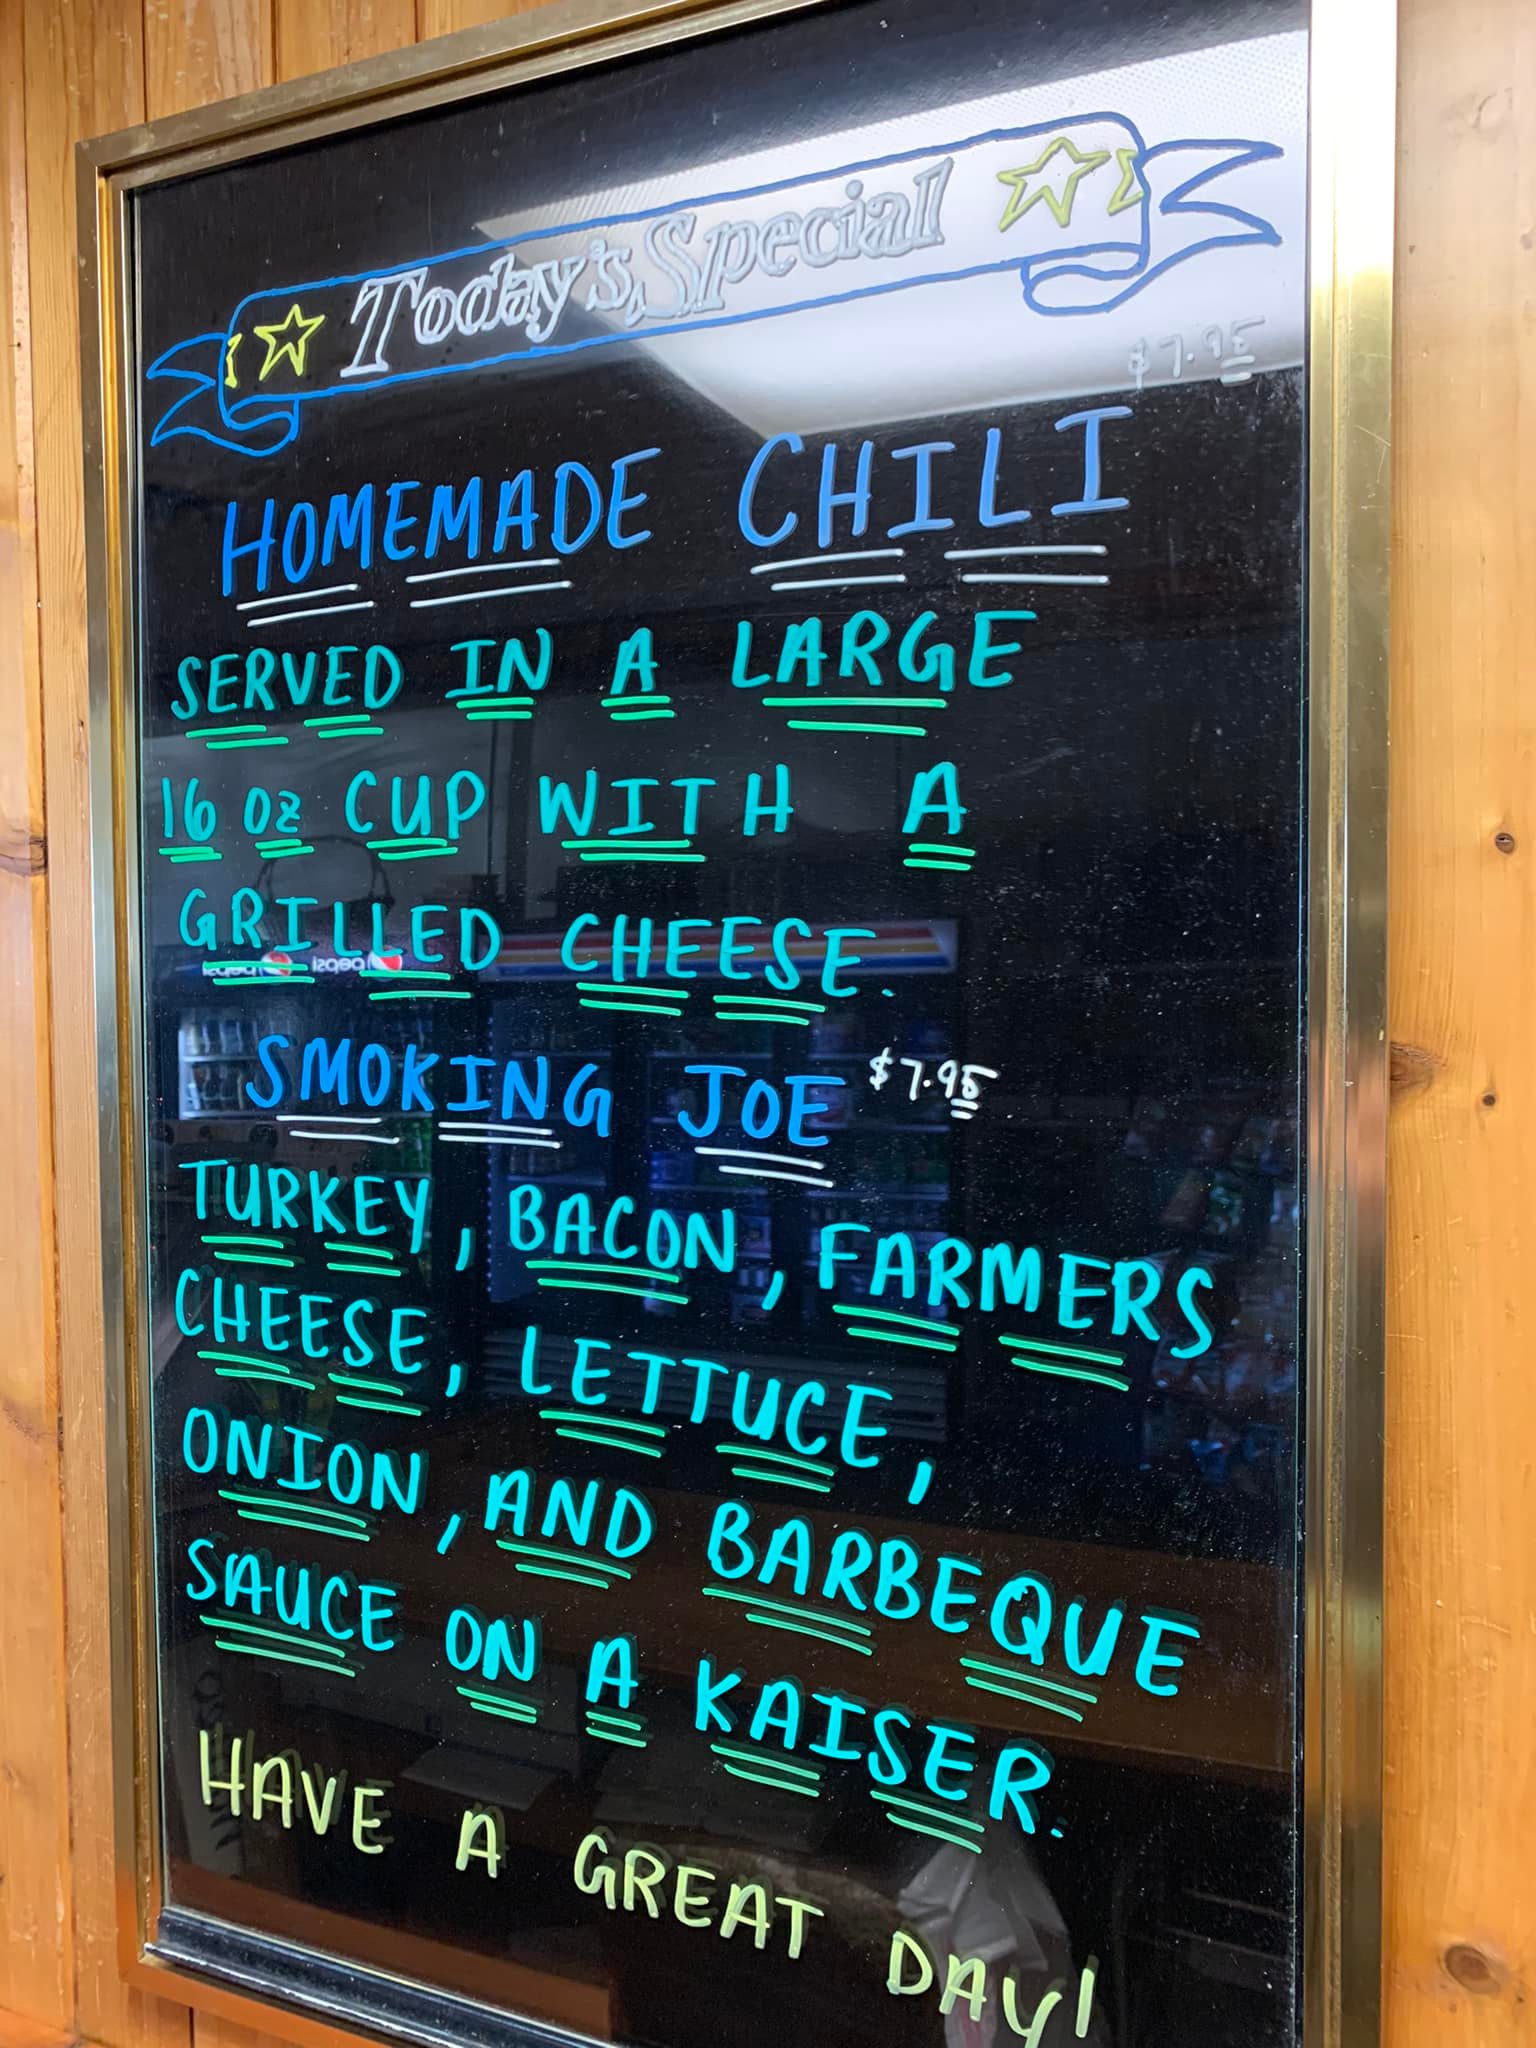 Today's Special
$7.95
HOMEMADE CHILI
SERVED IN A LARGE
16 oz CUP WITH A
GRILLED CHEESE.
SMOKING JOE $7.95
TURKEY, BACON, FARMERS
CHEESE, LETTUCE,
ONION, AND BARBEQUE
SAUCE ON A KAISER.
HAVE A GREAT DAY!
pepsi pepsi